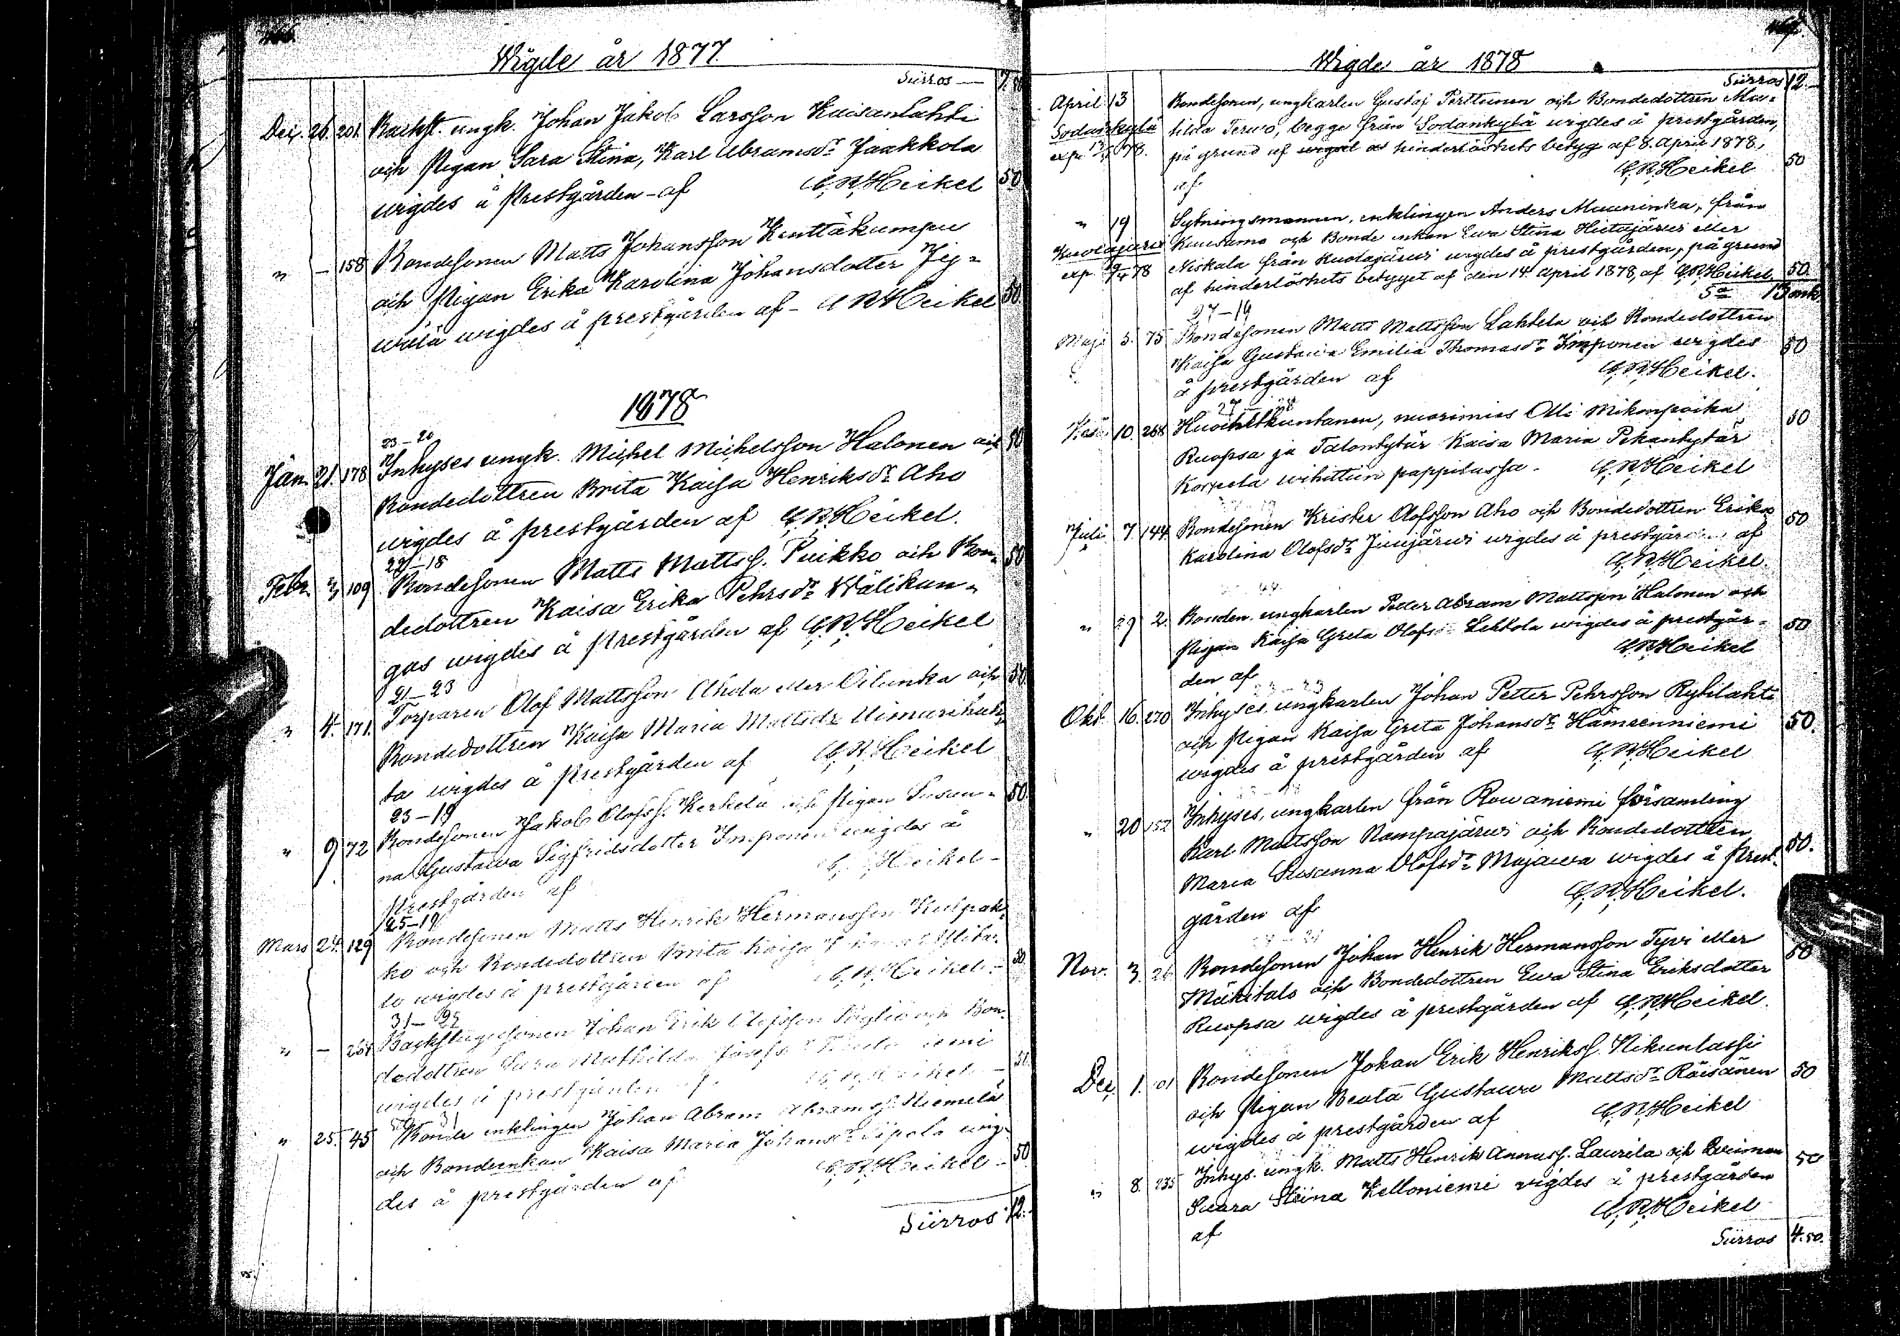 Wigde år 1877.
Siirros — 7.50
Dec. 26. 201. Backst. ungk. Johan Jakob Larsson Kaisanlahti
och Pigan Sara Stina, Karl Abramsdr Jaakkola
wigdes å Prestgården af G,R,Heikel 50
" — 158 Bondesonen Matts Johansson Kenttäkumpu
och Pigan Erika Karolina Johansdotter Jy-
wälä wigdes å prestgården af - G R Heikel 50.
1878
23–20
Jan. 21. 178 Inhyses ungk. Michel Michelsson Halonen och 50
Bondedottren Brita Kaisa Henriksdr Aho
wigdes å prestgården af G,R,Heikel.
22–18
Febr. 3 109 Bondesonen Matts Mattss. Puikko och Bon- 50
dedottren Kaisa Erika Pehrsdr Wälikan-
gas wigdes å Prestgården af G,R,Heikel
21–23
" 4. 171. Torparen Olof Mattsson Ahola eller Oilunka och 50
Bondedottren Kaisa Maria Mattsdr
ta wigdes å Prestgården af G,R,Heikel
23–19
" 9 72 Bondesonen Jakob Olofss. Kerkelä och Pigan Susan- 50.
na Gustawa Sigfridsdotter Imponen wigdes å
prestgården af G,R,Heikel -
25–19
Mars 24. 129 Bondesonen Matts Henrik Hermansson Kuipak-
ko och Bondedottren Brita Kaisa
lo wigdes å prestgården af G,R,Heikel - 50.
31–22
" — 264 Backstugesonen Johan Erik Olofsson och Bon-
dedottren Sara Mathilda
wigdes å prestgården af G,R,Heikel - 50.
" 25. 45 Bonde enklingen Johan Abram Abramss. Niemelä
och Bondeenkan Kaisa Maria Johansdr Sipola wig-
des å prestgården af G,R,Heikel - 50
Siirros 12.-
Wigde år 1878
Siirros 12.-
April 13 Bondesonen, ungkarlen Gustaf Perttunen och Bondedottren Ma-
Sodankylä tilda Terwo, begge från Sodankylä wigdes å prestgården,
exp 13/4 78. på grund af hinderlöshets betyg af 8. April 1878,
af G,R,Heikel 50
" 19 Sytningsmannen, enklingen Anders Mauninka, från
Kuolajärvi Kuusamo och Bonde enkan Ewa Stina Hietajärwi eller
exp 19/4 78 Niskala från Kuolajärwi wigdes å prestgården, på grund
af hinderlöshets betyget af den 14 April 1878, af G,R,Heikel 50.
13 mk
27–19
Maji 5. 75 Bondesonen Matts Mattsson Lahtela och Bondedottren
Kaisa Gustawa Emilia Thomasdr Imponen wigdes 50
å prestgården af G,R,Heikel.
Kesä 10. 268 Huonekuntanen, nuorimies Olli Mikonpoika 50
Ruopsa ja Talontytär Kaisa Maria Pekantytär
Korpela wihittiin pappilassa. G,R,Heikel
Juli 7 144 Bondesonen Krister Olofsson Aho och Bondedottren Erika 50
Karolina Olofsdr Juujärwi wigdes å prestgården af
G,R,Heikel.
" 29 2. Bonden ungkarlen Petter Abram Mattsson Halonen och
Pigan Kaisa Greta Olofsdr Lehtola wigdes å prestgår- 50
den af G,R,Heikel
23–23
Okt. 16. 270 Inhyses ungkarlen Johan Petter Pehrsson Kylilahti
och Pigan Kaisa Greta Johansdr Hämeenniemi 50.
wigdes å prestgården af G,R,Heikel
" 20 152 Inhyses, ungkarlen från Rowaniemi församling
Karl Mattsson Nampajärwi och Bondedottren
Maria Susanna Olofsdr Majawa wigdes å Prest- 50.
gården af G,R,Heikel.
Nov. 3. 26 Bondesonen Johan Henrik Hermansson Typi eller 50
Mäkitalo och Bondedottren Ewa Stina Eriksdotter
Ruopsa wigdes å prestgården af G,R,Heikel.
Dec. 1. 101 Bondesonen Johan Erik Henrikss. Nikunlassi
och Pigan Beata Gustawa Mattsdr Räisänen 50
wigdes å prestgården af G,R,Heikel
" 8. 235 Inhys. ungk. Matts Henrik Annass. Laurila och Qwinnan 50
Saara Stiina Kelloniemi wigdes å prestgården
af G,R,Heikel
Siirros 4.50.